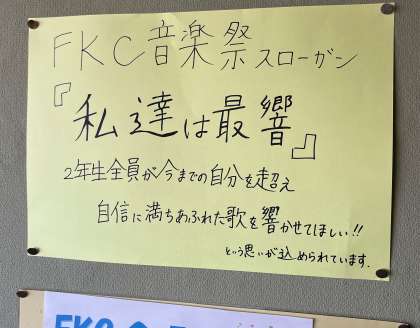 FKC音楽祭スローガン
『私達は最響』
2年生全員が今までの自分を超え
自信に満ちあふれた歌を響かせてほしい!!
という思いが込められています.
FKC